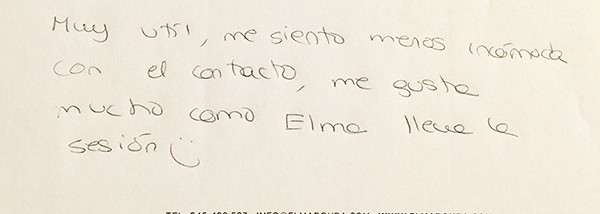 Muy util, me siento menos incómoda
con el contacto, me gusta
mucho como Elma lleva la
sesión :)